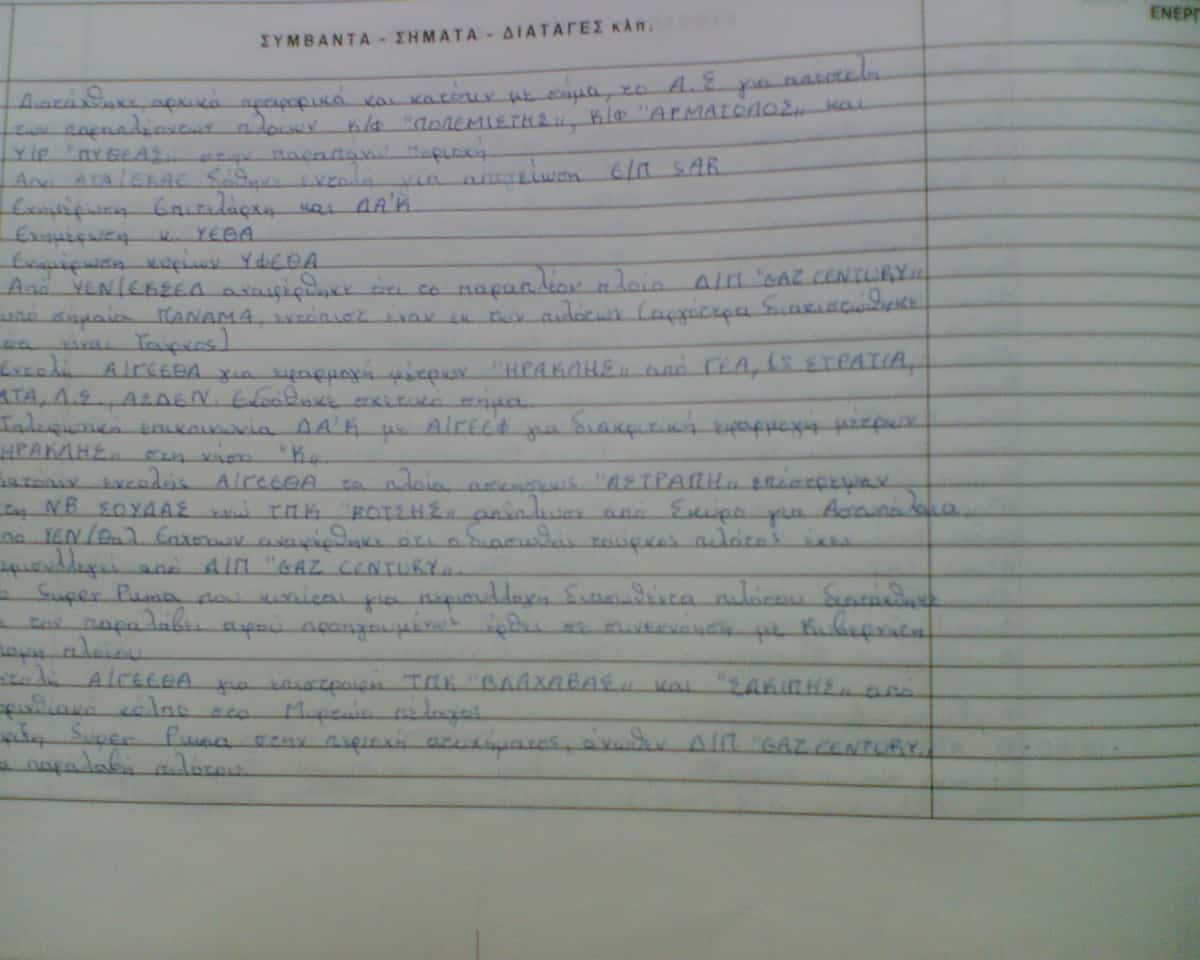 ΣΥΜΒΑΝΤΑ - ΣΗΜΑΤΑ - ΔΙΑΤΑΓΕΣ κλπ.
ΕΝΕΡΓ
Διατάχθηκε, αρχικά προφορικά και κατόπιν με σήμα, το Λ.Σ για αποστολή
των παραπλεόντων πλοίων Κ/Φ "ΠΟΛΕΜΙΣΤΗΣ", Κ/Φ "ΑΡΜΑΤΟΛΟΣ" και
Υ/Γ "ΠΥΘΕΑΣ" στην παραπάνω περιοχή
Από ΑΤΑ/ΕΚΑΕ δόθηκε εντολή για απογείωση Ε/Π SAR
Ενημέρωση Επιτελάρχη και ΔΑ'Κ
Ενημέρωση κ. ΥΕΘΑ
Ενημέρωση κυρίων ΥΦΕΘΑ
Από ΥΕΝ/ΕΚΣΕΔ αναφέρθηκε ότι το παραπλέον πλοίο Δ/Π "GAZ CENTURY"
υπό σημαία ΠΑΝΑΜΑ, εντόπισε έναν εκ των πιλότων (αργότερα διαπιστώθηκε
είναι Τούρκος)
Εντολή Α/ΓΕΕΘΑ για εφαρμογή μέτρων "ΗΡΑΚΛΗΣ" από ΓΕΑ, 1η ΣΤΡΑΤΙΑ,
ΑΤΑ, Λ.Σ., ΑΣΔΕΝ. Εκδόθηκε σχετικό σήμα.
Τηλεφωνική επικοινωνία ΔΑ'Κ με Α/ΓΕΕΦ για διακριτική εφαρμογή μέτρων
ΗΡΑΚΛΗΣ" στη νήσο "Κ".
ατόπιν εντολής Α/ΓΕΕΘΑ τα πλοία ασκήσεως "ΑΣΤΡΑΠΗ" επέστρεψαν
ΝΒ ΣΟΥΔΑΣ ενώ ΤΠΚ "ΚΟΤΣΗΣ" απέπλευσε από Σκύρο για Αστυπάλαια.
πό ΥΕΝ/Θαλ. Επιχ/σεων αναφέρθηκε ότι ο διασωθείς τούρκος πιλότος έχει
ερισυλλεγεί από Δ/Π "GAZ CENTURY".
Super Puma που κινείται για περισυλλογή διασωθέντα πιλότου διατάχθηκε
τον παραλάβει αφού προηγουμένως έρθει σε συνεννόηση με Κυβερνήτη
πλοίου
τολή Α/ΓΕΕΘΑ για επιστροφή ΤΠΚ "ΒΛΑΧΑΒΑΣ" και "ΣΑΚΙΠΗΣ" από
κόλπο στο Μυρτώο πέλαγος
Super Puma στην περιοχή ατυχήματος, άνωθεν Δ/Π "GAZ CENTURY"
παραλαβή πιλότου.